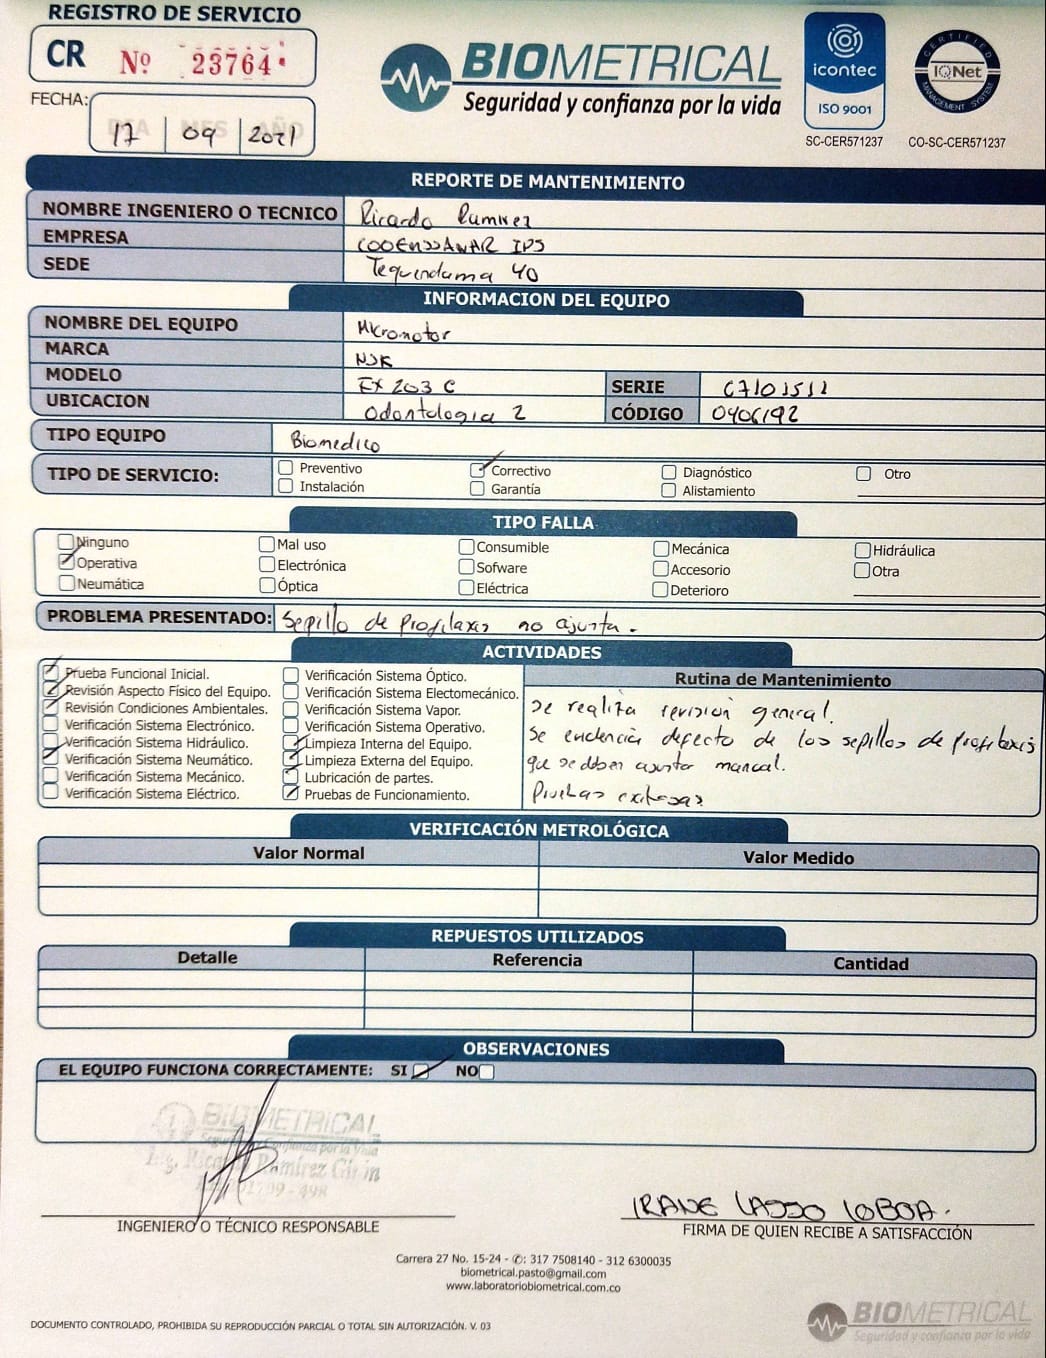 REGISTRO DE SERVICIO
CR Nº 23764
FECHA: 17 09 2021
BIOMETRICAL
Seguridad y confianza por la vida
icontec
ISO 9001
SC-CER571237
CERTIFIED
IQNet
MANAGEMENT SYSTEM
CO-SC-CER571237
REPORTE DE MANTENIMIENTO
NOMBRE INGENIERO O TECNICO Ricardo Ramirez
EMPRESA COOEMSSANAR IPS
SEDE Tequendama 40
INFORMACION DEL EQUIPO
NOMBRE DEL EQUIPO Micromotor
MARCA NSK
MODELO EX 203 C SERIE C7101511
UBICACION Odontologia 2 CÓDIGO 0406192
TIPO EQUIPO Biomedico
TIPO DE SERVICIO:
Preventivo Correctivo Diagnóstico Otro
Instalación Garantía Alistamiento
TIPO FALLA
Ninguno Mal uso Consumible Mecánica Hidráulica
Operativa Electrónica Sofware Accesorio Otra
Neumática Óptica Eléctrica Deterioro
PROBLEMA PRESENTADO: Sepillo de profilaxis no ajusta.
ACTIVIDADES
Prueba Funcional Inicial.
Revisión Aspecto Físico del Equipo.
Revisión Condiciones Ambientales.
Verificación Sistema Electrónico.
Verificación Sistema Hidráulico.
Verificación Sistema Neumático.
Verificación Sistema Mecánico.
Verificación Sistema Eléctrico.
Verificación Sistema Óptico.
Verificación Sistema Electomecánico.
Verificación Sistema Vapor.
Verificación Sistema Operativo.
Limpieza Interna del Equipo.
Limpieza Externa del Equipo.
Lubricación de partes.
Pruebas de Funcionamiento.
Rutina de Mantenimiento
Se realiza revisión general.
Se evidencia defecto de los sepillos de profilaxis
que se deben ajustar manual.
Pruebas exitosas
VERIFICACIÓN METROLÓGICA
Valor Normal Valor Medido
REPUESTOS UTILIZADOS
Detalle Referencia Cantidad
OBSERVACIONES
EL EQUIPO FUNCIONA CORRECTAMENTE: SI NO
BIOMETRICAL
Seguridad y Confianza por la Vida
Ing. Ricardo Ramírez
INGENIERO O TÉCNICO RESPONSABLE
IRANE LASSO LOBOA.
FIRMA DE QUIEN RECIBE A SATISFACCIÓN
Carrera 27 No. 15-24 - ✆: 317 7508140 - 312 6300035
biometrical.pasto@gmail.com
www.laboratoriobiometrical.com.co
DOCUMENTO CONTROLADO, PROHIBIDA SU REPRODUCCIÓN PARCIAL O TOTAL SIN AUTORIZACIÓN. V. 03
BIOMETRICAL
Seguridad y confianza por la vida